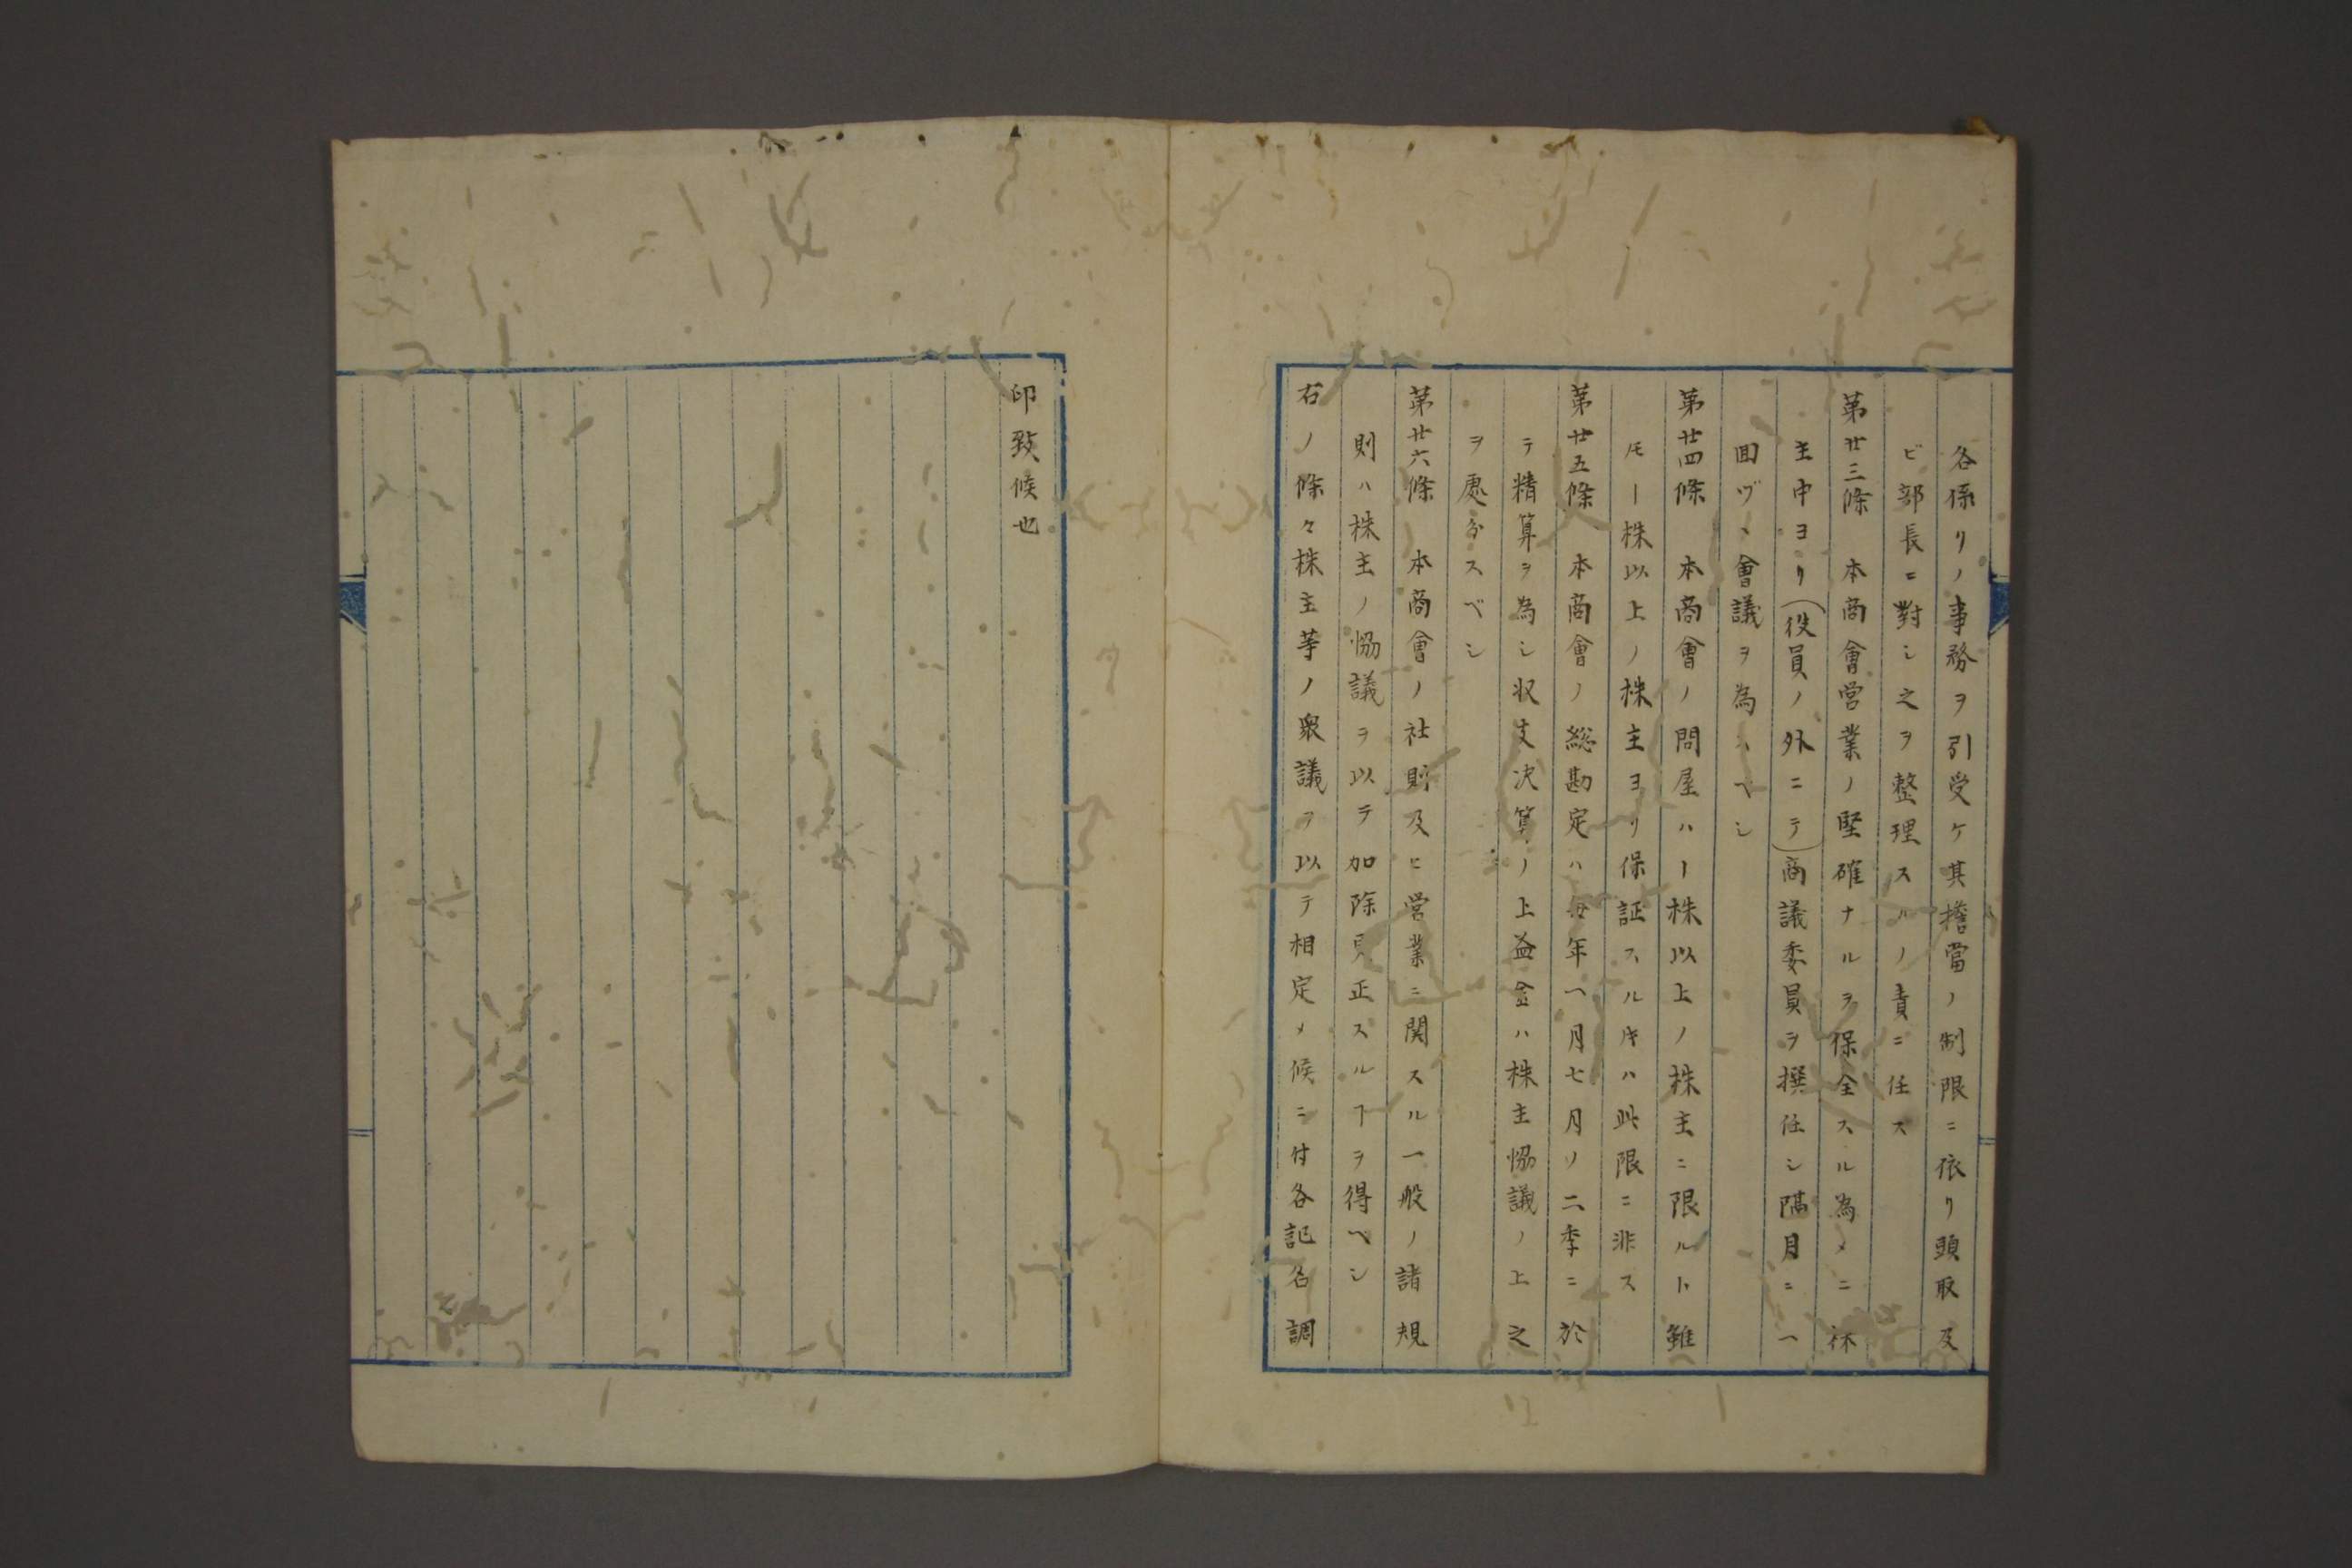 各係リノ事務ヲ引受ケ其擔當ノ制限ニ依リ頭取及
ビ部長ニ對シ之ヲ整理スルノ責ニ任ス
第廿三條 本商會営業ノ堅確ナルヲ保全スル為メニ株
主中ヨリ(役員ノ外ニテ)商議委員ヲ撰任シ隔月ニ一
回ヅヽ會議ヲ為スベシ
第廿四條 本商會ノ問屋ハ一株以上ノ株主ニ限ルト雖
𪜈一株以上ノ株主ヨリ保証スルキハ此限ニ非ス
第廿五條 本商會ノ総勘定ハ毎年一月七月ノ二季ニ於
テ精算ヲ為シ収支决算ノ上益金ハ株主恊議ノ上之
ヲ處分スベシ
第廿六條 本商會ノ社則及ヒ営業ニ関スル一般ノ諸規
則ハ株主ノ恊議ヲ以テ加除更正スルヿヲ得ベシ
右ノ條々株主等ノ衆議ヲ以テ相定メ候ニ付各記名調
印致候也